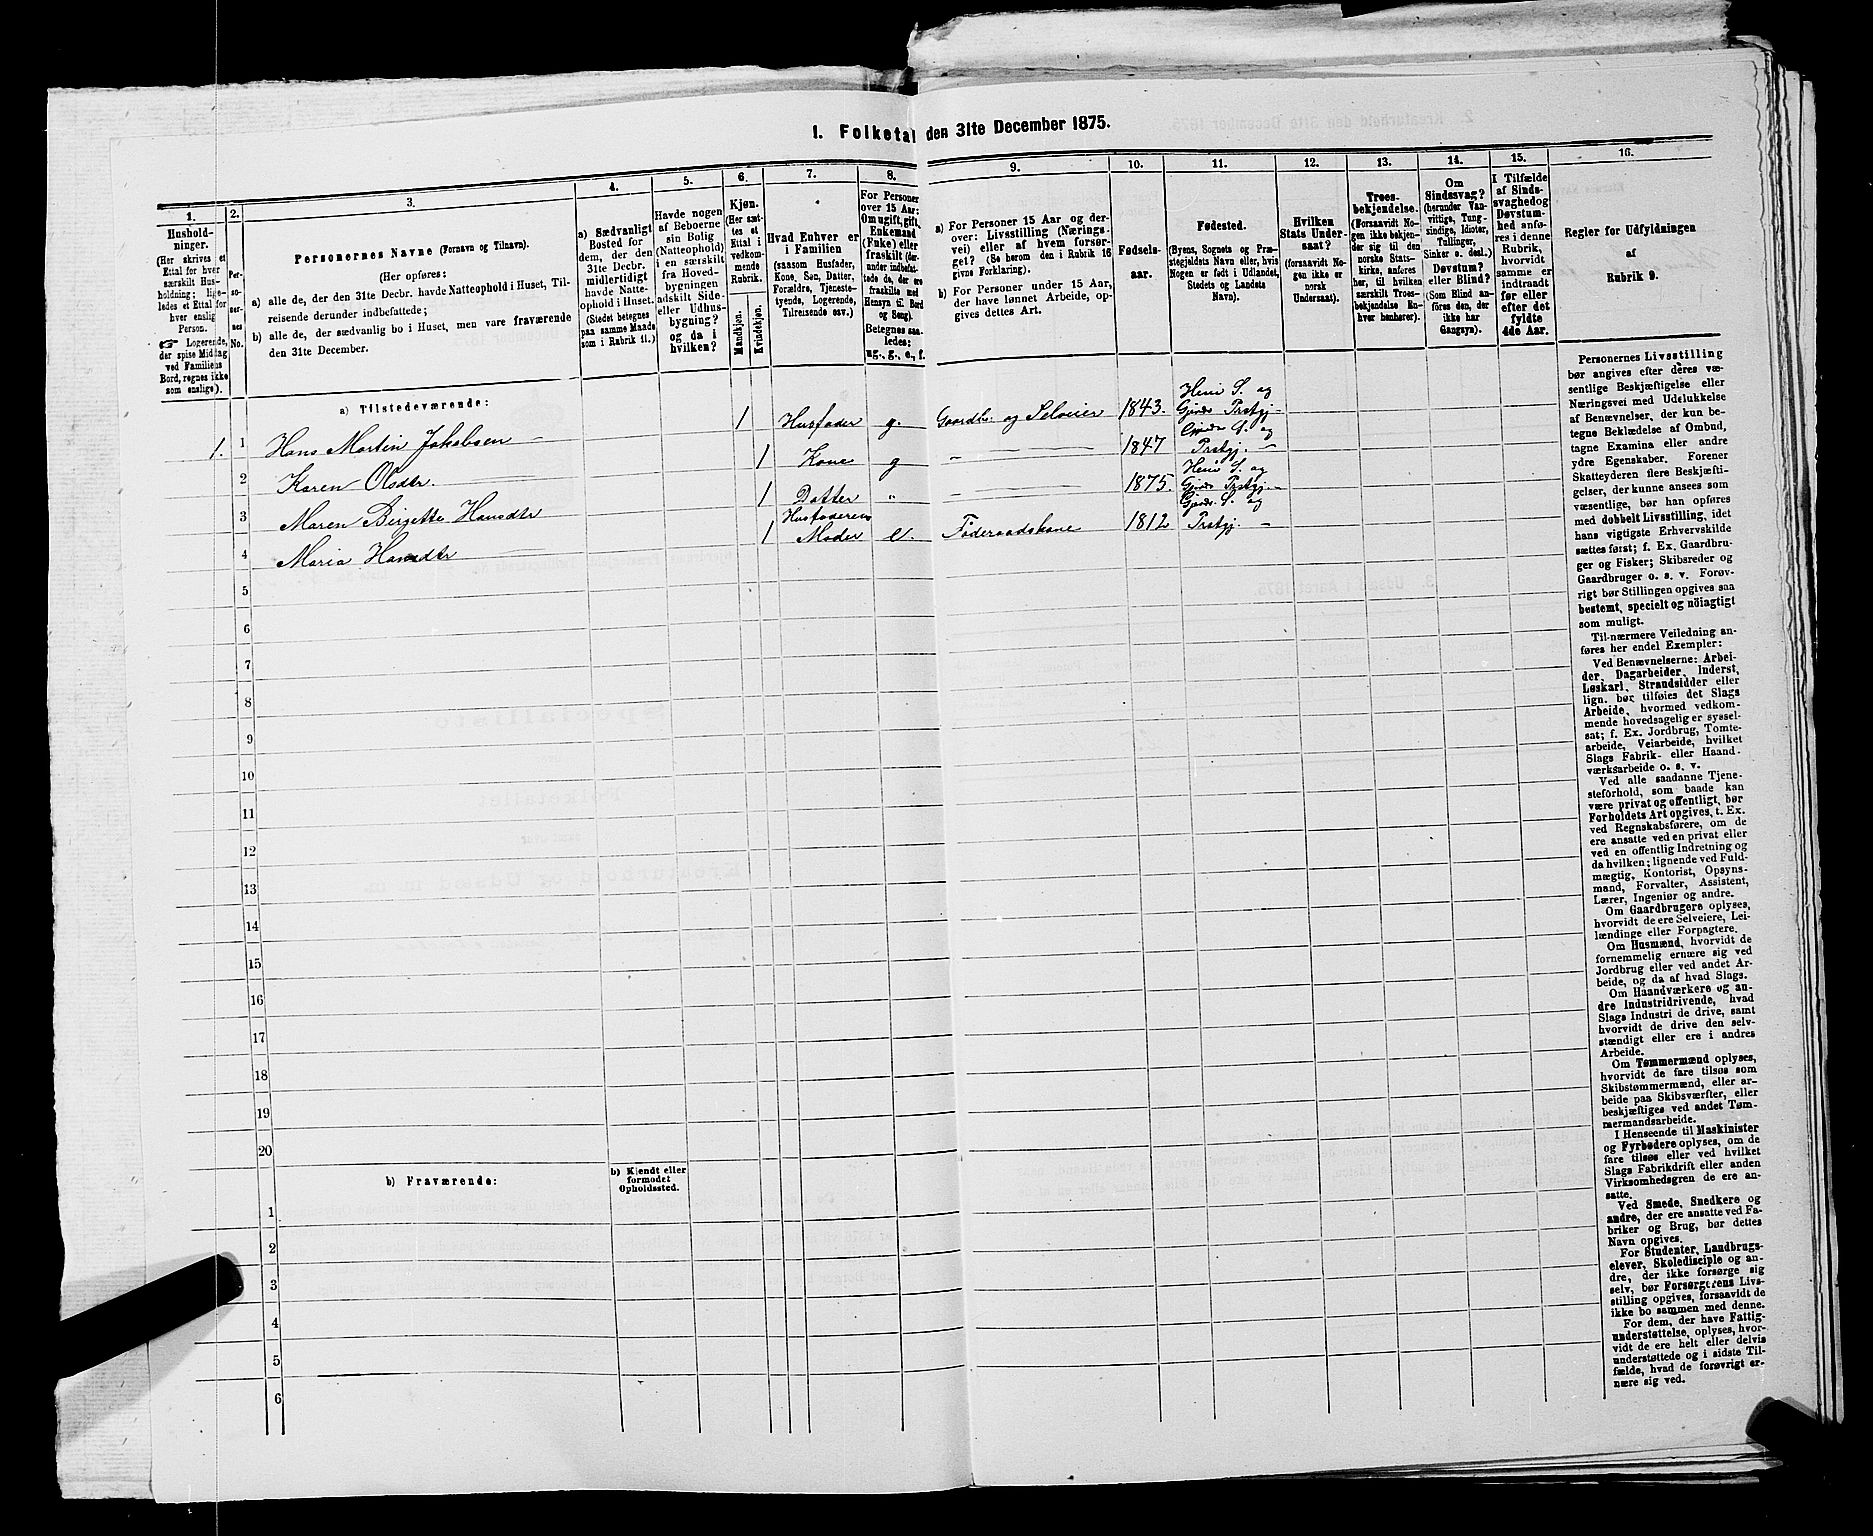 1. Folketal den 31te December 1875.
1.
2.
3.
4.
5.
6.
7.
8.
9.
10.
11.
12.
13.
14.
15.
16.
Hushold-
ninger.
(Her skrives et
Ettal for hver
særskilt Hus-
holdning; lige-
ledes et Ettal for
hver enslig
Person.
☞ Logerende,
der spise Middag
ved Familiens
Bord, regnes ikke
som enslige).
Per-
so-
ner-
nes
No.
Personernes Navne (Fornavn og Tilnavn).
(Her opføres:
a) alle de, der den 31te Decbr. havde Natteophold i Huset, Til-
reisende derunder indbefattede;
b) alle de, der sædvanlig bo i Huset, men vare fraværende
den 31te December.
a) Sædvanligt
Bosted for
dem, der den
31te Decbr.
midlertidigt
havde Natte-
ophold i Huset.
(Stedet betegnes
paa samme Maade
som i Rubrik 11.)
Havde nogen
af Beboerne
sin Bolig
(Natteophold)
i en særskilt
fra Hoved-
bygningen
adskilt Side-
eller Udhus-
bygning?
og da i
hvilken?
Kjøn.
(Her sæt-
tes et
Ettal i
vedkom-
mende
Rubrik.
Mandkjøn.
Kvindekjøn.
Hvad Enhver er
i Familien
(saasom Husfader,
Kone, Søn, Datter,
Forældre, Tjeneste-
tyende, Logerende,
Tilreisende osv.)
For Personer
over 15 Aar:
Om ugift, gift,
Enkemand
(Enke) eller
fraskilt (der-
under indbefat-
tede de, der ere
fraskilte med
Hensyn til Bord
og Seng).
Betegnes saa-
ledes:
ug., g., e., f.
a) For Personer 15 Aar og der-
over: Livsstilling (Nærings-
vei) eller af hvem forsør-
get? (Se herom den i Rubrik 16
givne Forklaring).
b) For Personer under 15 Aar,
der have lønnet Arbeide, op-
gives dettes Art.
Fødsels-
aar.
Fødested.
(Byens, Sognets og Præ-
stegjeldets Navn eller, hvis
Nogen er født i Udlandet,
Stedets og Landets
Navn).
Hvilken
Stats Under-
saat?
(forsaavidt No-
gen ikke er
norsk
Undersaat).
Troes-
bekjendelse.
(Forsaavidt No-
gen ikke bekjen-
der sig til den
norske Stats-
kirke, anføres
her, til hvilken
særskilt Troes-
bekjendelse En-
hver henhører).
Om
Sindssvag?
(herunder Van-
vittige, Tung-
sindige, Idioter,
Tullinger,
Sinker o. desl.)
Døvstum?
eller Blind?
(Som Blind an-
føres den, der
ikke har
Gangsyn).
I Tilfælde
af Sinds-
svaghed og
Døvstum-
hed anfø-
res i denne
Rubrik,
hvorvidt
samme er
indtraadt
før eller
efter det
fyldte
4de Aar.
Regler for Udfyldningen
af
Rubrik 9.
a) Tilstedeværende:
1. 1 Hans Martin Jakobsen 1 Husfader g. Gaardbr. og Selveier 1843. S. og Prstgj.
2 Karen Olsdtr. 1 Kone g — 1847 S. og Prstgj. —
3 Maren Birgette Hansdtr 1 Datter " — 1875. S. og Prstgj. —
4 Maria Hansdtr 1 Husfaderens Moder e. Føderaadskone 1812 S. og Prstgj. —
5
6
7
8
9
10
11
12
13
14
15
16
17
18
19
20
b) Fraværende:
b) Kjendt eller
formodet
Opholdssted.
1
2
3
4
5
6
Personernes Livsstilling
bør angives efter deres væ-
sentlige Beskjæftigelse eller
Næringsvei med Udelukkelse
af Benævnelser, der kun be-
tegne Beklædelse af Ombud,
tagne Examina eller andre
ydre Egenskaber. Forener
Skatteyderen flere Beskjæfti-
gelser, der kunne ansees som
væsentlige, bør han opføres
med dobbelt Livsstilling, idet
hans vigtigste Erhvervskilde
sættes først; f. Ex. Gaardbru-
ger og Fisker; Skibsreder og
Gaardbruger o. s. v. Forøv-
rigt bør Stillingen opgives saa
bestemt, specielt og nöiagtigt
som muligt.
Til nærmere Veiledning an-
føres her endel Exempler:
Ved Benævnelserne: Arbei-
der, Dagarbeider, Inderst,
Løskarl, Strandsidder eller
lign. bør tilføies det Slags
Arbeide, hvormed vedkom-
mende hovedsagelig er syssel-
sat; f. Ex. Jordbrug, Tomte-
arbeide, Veiarbeide, hvilket
Slags Fabrik- eller Haand-
værksarbeide o. s. v.
Ved alle saadanne Tjene-
steforhold, som baade kan
være privat og offentligt, bør
Forholdets Art opgives, t. Ex.
ved Regnskabsførere, om de
ere ansatte ved en privat eller
ved en offentlig Indretning og
da hvilken; lignende ved Fuld-
mægtig, Kontorist, Opsyns-
mand, Forvalter, Assistent,
Lærer, Ingeniør og andre.
Om Gaardbrugere oplyses,
hvorvidt de ere Selveiere, Lei-
lændinge eller Forpagtere.
Om Husmænd, hvorvidt de
fornemmelig ernære sig ved
Jordbrug eller ved andet Ar-
beide, og da af hvad Slags.
Om Haandværkere og an-
dre Industridrivende, hvad
Slags Industri de drive, samt
hvorvidt de drive den selv-
stændigt eller ere i andres
Arbeide.
Om Tømmermænd oplyses,
hvorvidt de fare tilsøs som
Skibstømmermænd, eller ar-
beide paa Skibsværfter, eller
beskjæftiges ved andet Tøm-
mermandsarbeide.
I Henseende til Maskinister
og Fyrbødere oplyses, om de
fare tilsøs eller ved hvilket
Slags Fabrikdrift eller anden
Virksomhedsgren de ere an-
satte.
Ved Smede, Snedkere og
andre, der ere ansatte ved Fa-
briker og Brug, bør dettes
Navn opgives.
For Studenter, Landbrugs-
elever, Skoledisciple og an-
dre, der ikke forsørge sig
selv, bør Forsørgerens Livs-
stilling opgives, forsaavidt de
ikke bo sammen med denne.
For dem, der have Fattig-
understøttelse, oplyses, hvor-
vidt de ere helt eller delvis
understøttede og i sidste Til-
fælde, hvad de forøvrigt er-
nære sig ved.